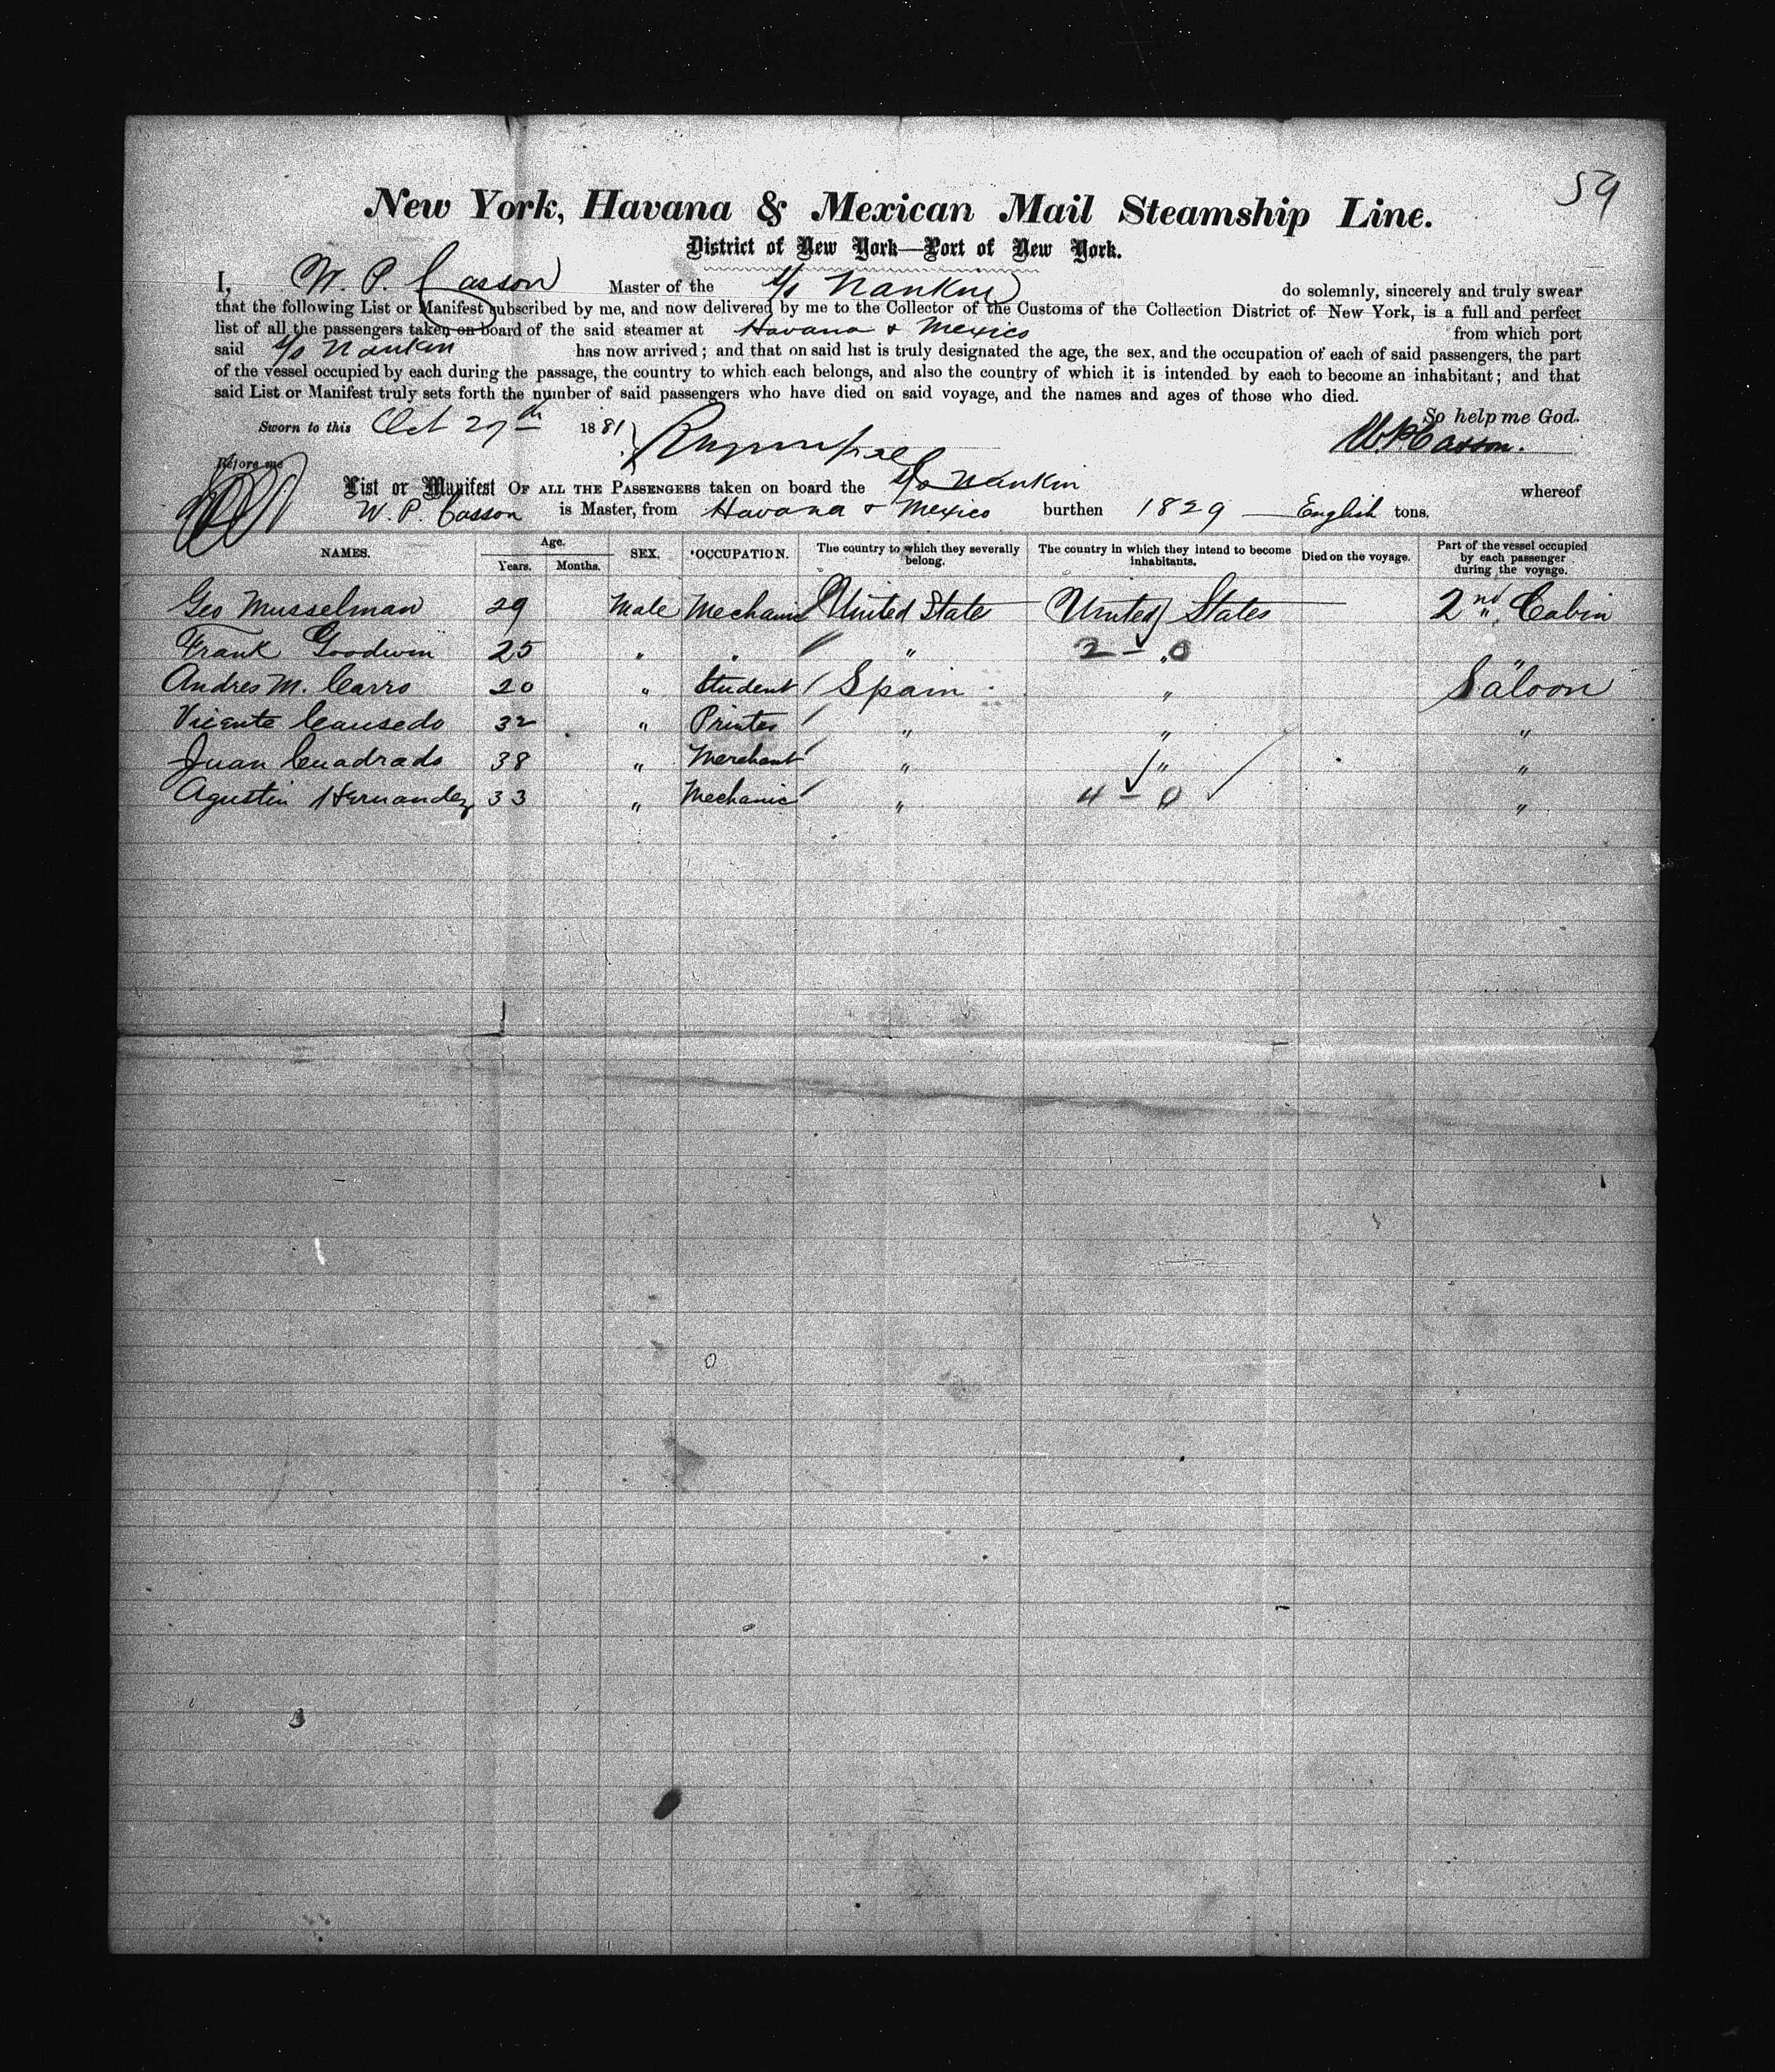 59
New York, Havana & Mexican Mail Steamship Line.
District of New York—Port of New York.
I, W. P. Casson Master of the S/S Nankin do solemnly, sincerely and truly swear
that the following List or Manifest subscribed by me, and now delivered by me to the Collector of the Customs of the Collection District of New York, is a full and perfect
list of all the passengers taken on board of the said steamer at Havana & Mexico from which port
said S/S Nankin has now arrived; and that on said list is truly designated the age, the sex, and the occupation of each of said passengers, the part
of the vessel occupied by each during the passage, the country to which each belongs, and also the country of which it is intended by each to become an inhabitant; and that
said List or Manifest truly sets forth the number of said passengers who have died on said voyage, and the names and ages of those who died.
So help me God.
Sworn to this Oct 27th 1881
W. P. Casson.
Before me
List or Manifest OF ALL THE PASSENGERS taken on board the S/S Nankin whereof
W. P. Casson is Master, from Havana & Mexico burthen 1829 English tons.
NAMES. Age. Years. Months. SEX. OCCUPATION. The country to which they severally belong. The country in which they intend to become inhabitants. Died on the voyage. Part of the vessel occupied by each passenger during the voyage.
Geo Musselman 29 Male Mechanic United State United States 2nd Cabin
Frank Goodwin 25 " " " 2 - 0 " "
Andres M. Carro 20 " Student Spain " Saloon
Vicente Causedo 32 " Printer " " "
Juan Cuadrado 38 " Merchant " " "
Agustin Hernandez 33 " Mechanic " 4 - 0 " "